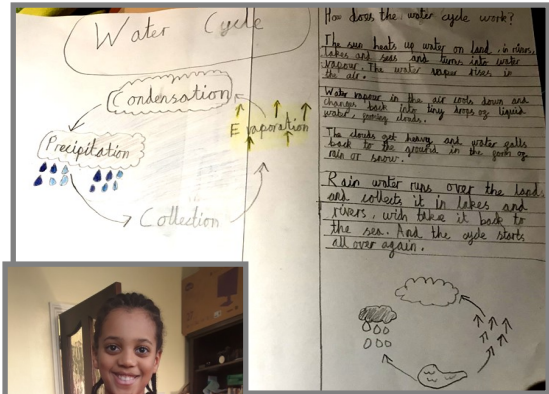 Water Cycle
Condensation
Evaporation
Precipitation
Collection
How does the water cycle work?
The sun heats up water on land, in rivers,
lakes and seas and turns into water
vapour. The water vapor rises in
the air.
Water vapour in the air cools down and
changes back into tiny drops of liquid
water, forming clouds.
The clouds get heavy and water falls
back to the ground in the form of
rain or snow.
Rain water runs over the land
and collects it in lakes and
rivers, wich take it back to
the sea. And the cycle starts
all over again.